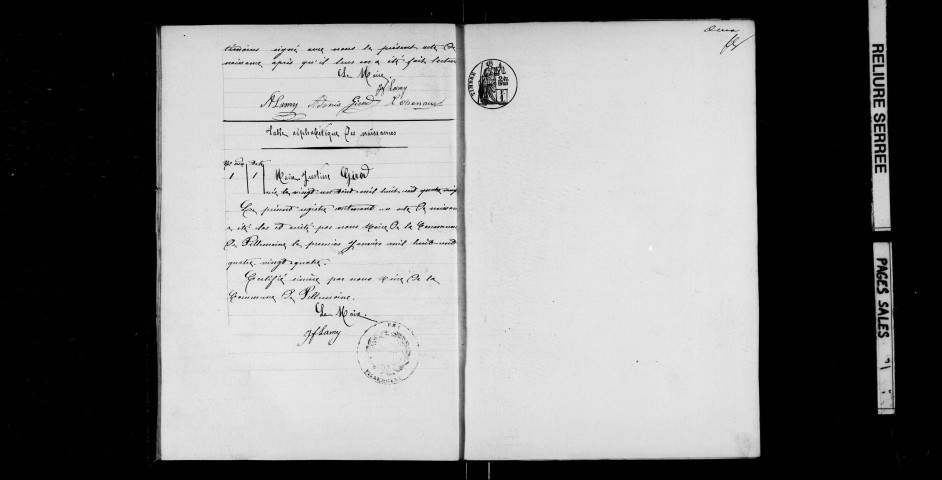 témoins signé avec nous le présent acte de
naissance après qu'il leur en a été fait lecture
Le Maire,
Jf Lamy
A Lamy Adonis Girod
Table alphabétique des naissances
1 1 Marie Justine Girod
née le vingt un août mil huit cent quatre vingt
Le présent registre contenant un acte de naissance
a été clos et arrêté par nous Maire de la Commune
de Pillemoine le premier Janvier mil huit cent
quatre-vingt-quatre.
Certifié sincère par nous Maire de la
Commune de Pillemoine.
Le Maire,
Jf Lamy
PILLEMOINE
TIMBRE
RELIURE SERREE
PAGES SALES